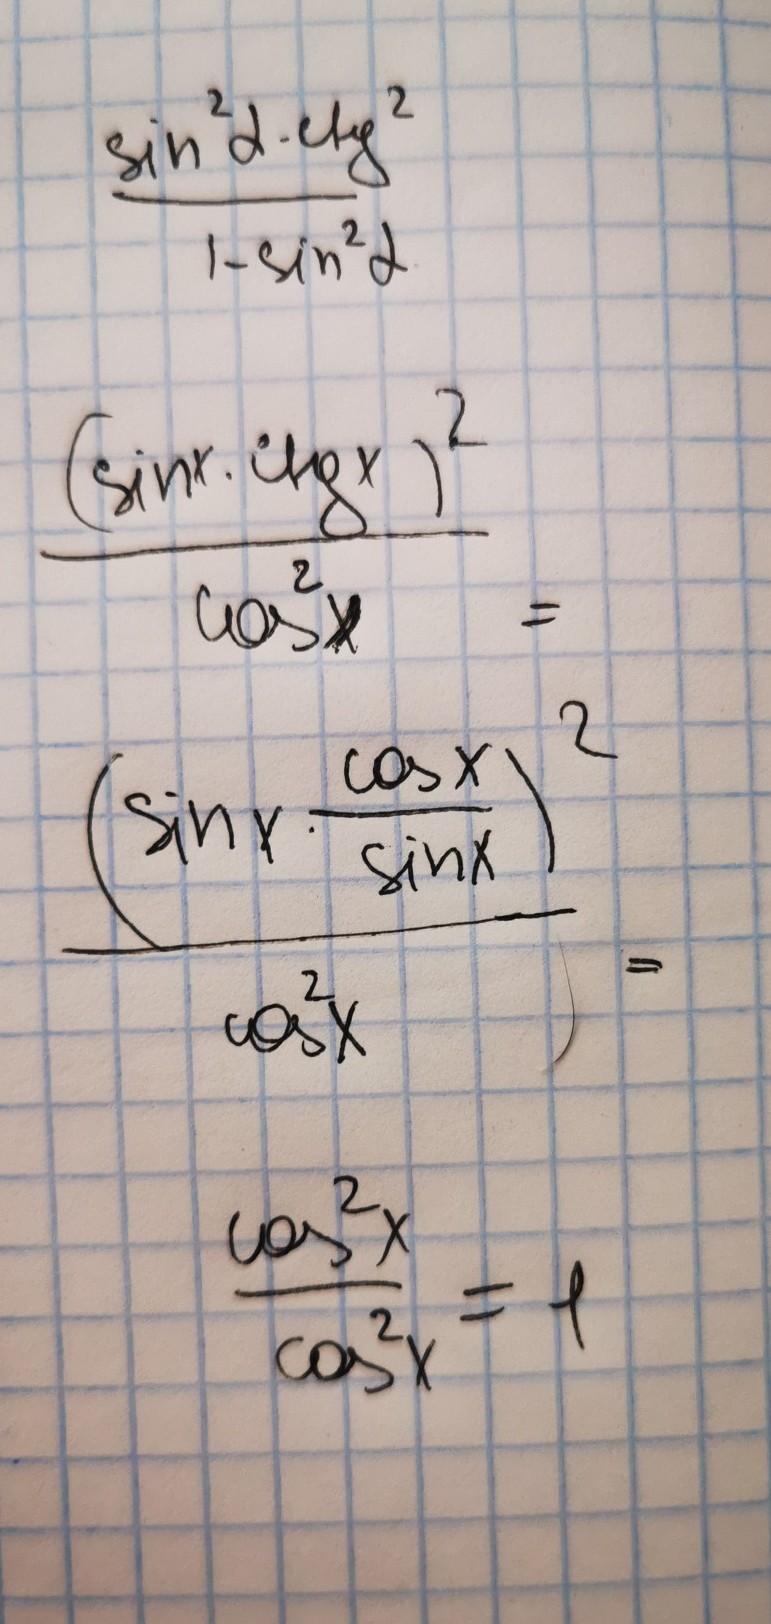 sin²α·ctg²
1-sin²α
(sinx·ctgx)²
cos²x =
(sinx·cosx/sinx)²
cos²x =
cos²x
cos²x = 1